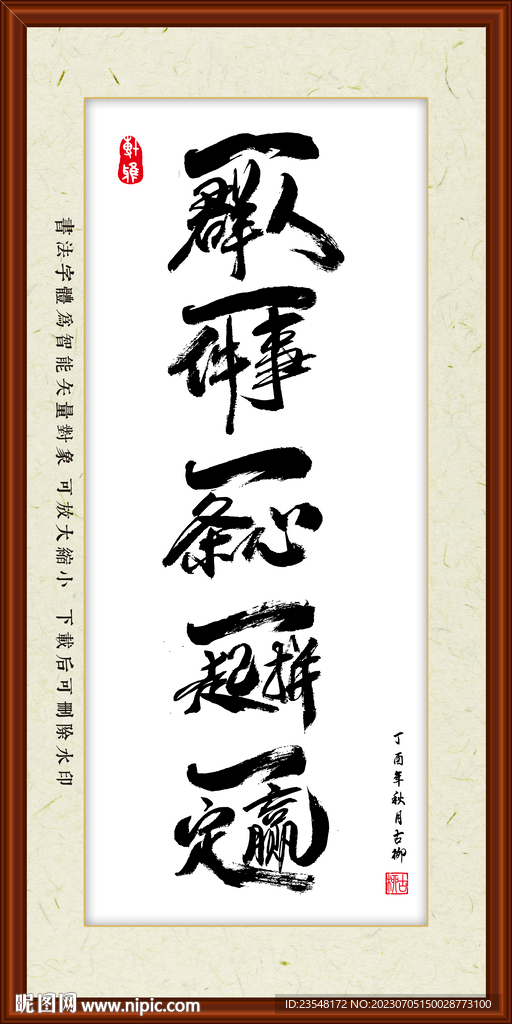 軒雅
一群人
一件事
一条心
一起拼
一定赢
書法字體為智能矢量對象 可放大縮小 下載后可刪除水印
丁酉年秋月古柳
昵图网 www.nipic.com
ID:23548172 NO:20230705150028773100